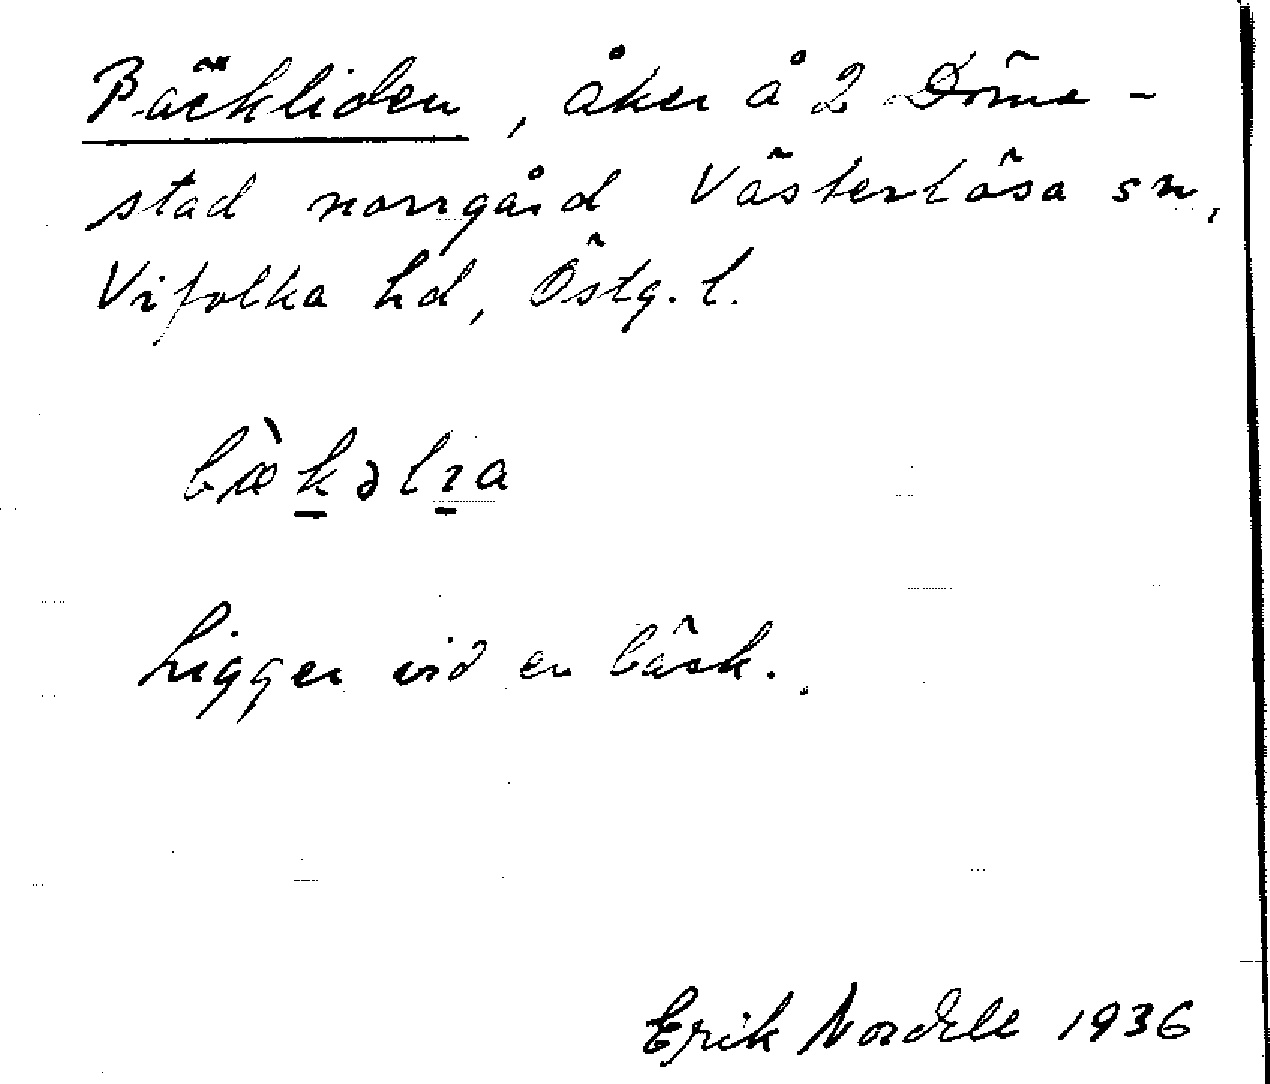 Bäckliden, åker å 2 Döme-
stad norrgård Västerlösa sn,
Vifolka hd, Östg. l.
bæ̀k̲əlı̲a
Ligger vid en bäck.
Erik Nordell 1936